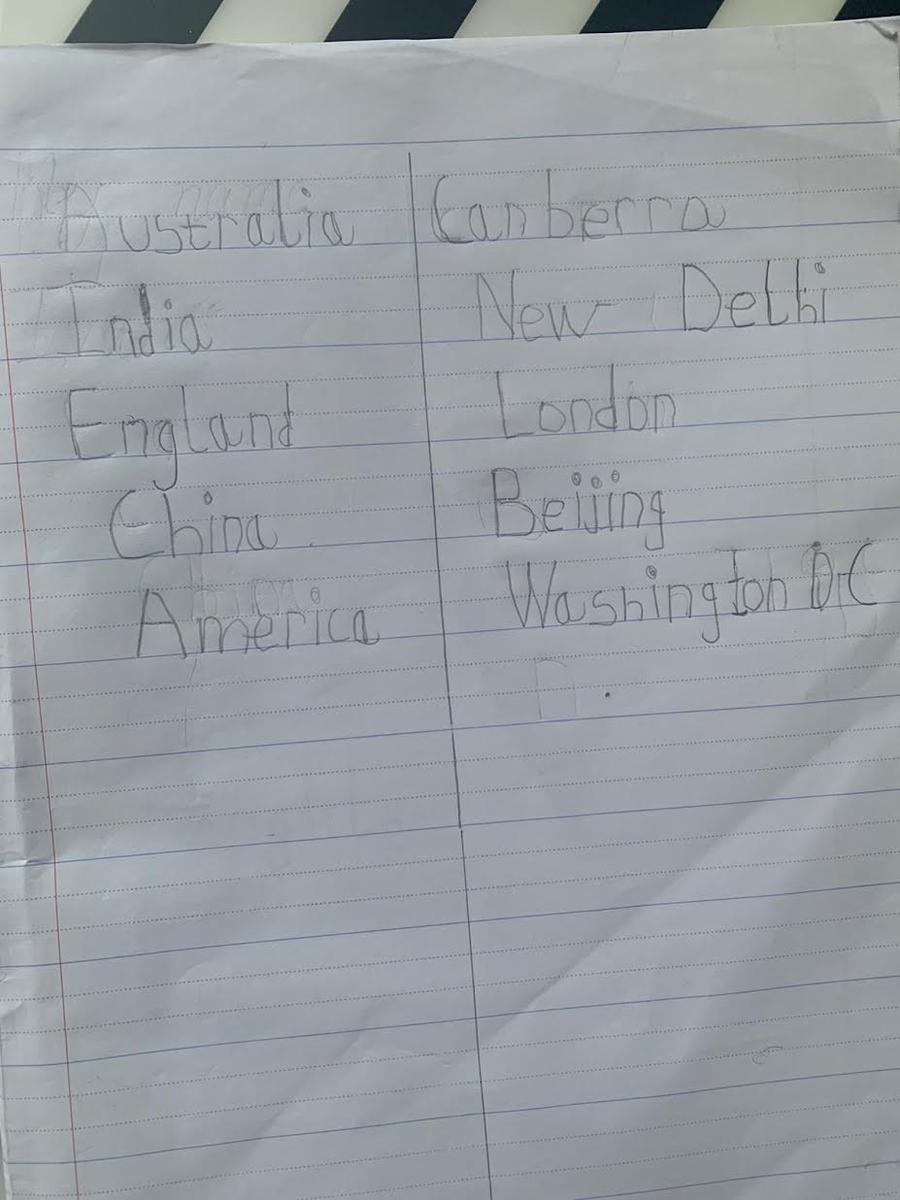 Australia Canberra
India New Delhi
England London
China Beijing
America Washington D.C